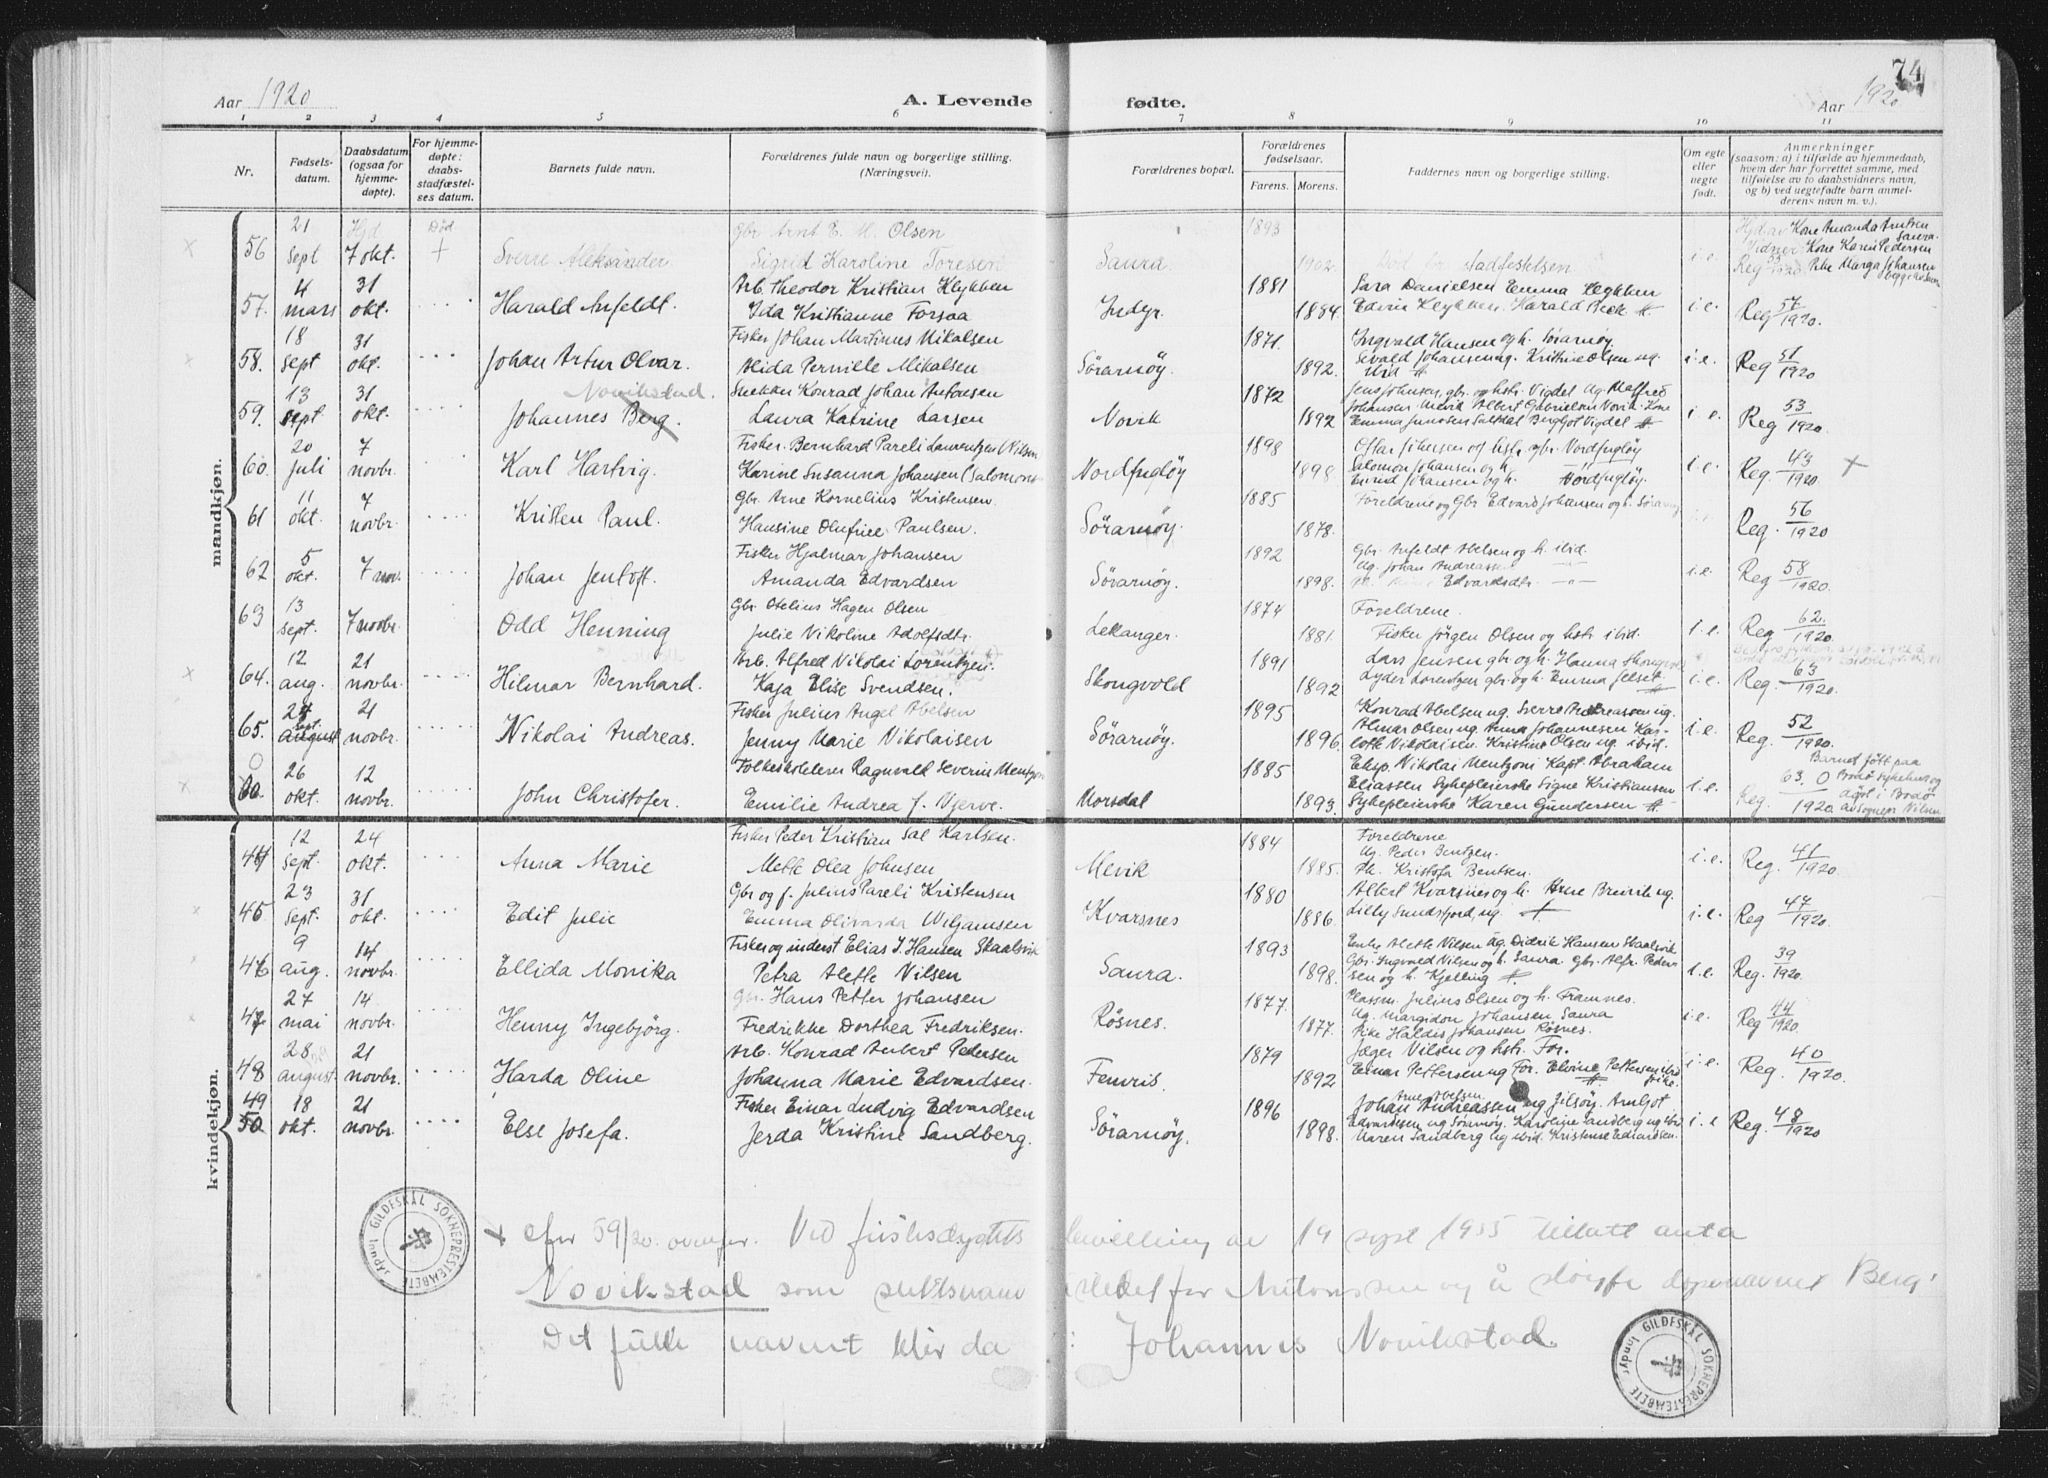 74
Aar 1920
A. Levende fødte.
Aar 1920
1 2 3 4 5 6 7 8 9 10 11
Nr.
Fødsels-
datum.
Daabsdatum
(ogsaa for
hjemme-
døpte).
For hjemme-
døpte:
daabs-
stadfæstel-
ses datum.
Barnets fulde navn.
Forældrenes fulde navn og borgerlige stilling.
(Næringsvei).
Forældrenes bopæl.
Forældrenes
fødselsaar.
Farens. Morens.
Faddernes navn og borgerlige stilling.
Om egte
eller
uegte
født.
Anmerkninger
(saasom: a) i tilfælde av hjemmedaab,
hvem der har forrettet samme, med
tilføielse av to daabsvidners navn,
og b) ved uegtefødte barn anmel-
derens navn m. v.).
mandkjøn.
21 Hjd Død Gbr Arnt E. M. Olsen 1893 Hjd av Kone Amanda Arntsen
56 Sept 7 okt. + Sverre Aleksander Sigrid Karoline Toresen Saura 1902 Død før stadfestelsen i.e. Saura.
Vidner: Kone Karen Pedersen
Pike Marga Johansen
4 31 Arb. Theodor Kristian Klykken 1881 Sara Danielsen Emma Klykken
57. mars okt. Harald Anfeldt. Ida Kristianne Forsaa Indyr. 1884 Edvin Klykken. Harald Beck i.e. Reg 57/1920.
18 31 Fisker Johan Martinus Mikalsen 1871 Ingvald Hansen og h. Sørarnøy.
58. Sept okt. Johan Artur Olvar. Alida Pernille Mikalsen Sörarnöy. 1892. Sivald Johansen ug. Kristine Olsen ug. ibid i.e. Reg 51/1920
Novikstad.
13 31 Snekker Konrad Johan Antonsen 1872 Jens Johansen, gbr. og hstr. Vigdel Ug. Halfred
59. sept. okt. Johannes Berg. Laura Katrine Larsen Novik 1892 Johansen Mevik Albert Gabrielsen Novik Kone
Emma Jensen Saltdal Bergljot Vigdel i.e. Reg 53/1920.
20 7 Fisker. Bernhard Pareli Laurentzen (Nilsen 1898
60. juli novbr. Karl Hartvig. Karine Susanna Johansen (Salomons Nordfugløy 1898 Salomon Johansen og h. Nordfugløy. i.e. Reg. 43/1920 +
11 7 Gbr. Arne Kornelius Kristensen. 1885 Foreldrene og Gbr Edvard Johansen og h. Sørarnøy
61 okt. novbr. Kristen Paul. Hansine Olufine Paulsen. Sörarnöy. 1878. Reg. 56/1920
5 Fisker Hjalmar Johansen 1892 Gbr. Anfeldt Abelsen og h. ibid.
62 okt. 7 nov. Johan Jentoft. Amanda Edvardsen Sörarnöy. 1898. Ug. Johan Andreassen
Edvardsdtr. i.e Reg 58/1920.
13 Gbr. Otelius Hagen Olsen 1874 Foreldrene.
63 Sept. 7 novbr. Odd Henning Julie Nikoline Adolfsdtr. Lekanger. 1881. Fisker Jörgen Olsen og hstr ibid. i.e. Reg 62./1920.
12 21 Arb. Alfred Nikolai Lorentzen. 1891 Lars Jensen gbr. og h. Hanna Skongvold
64. aug. novbr. Hilmar Bernhard. Kaja Elise Svendsen. Skongvold 1892 Lyder Lorentzen gbr. og h. Emma Jelset. i.e. Reg. 63/1920.
24 21 Fisker Julius Angel Abelsen 1895 Konrad Abelsen ug. Sverre Andreassen ug.
65. sept. august novbr. Nikolai Andreas. Jenny Marie Nikolaisen Sörarnöy. 1896. Almar Olsen ug. Anna Johannesen Kar-
lotte Nikolaisen. Kristine Olsen ug. ibid. i.e. Reg. 52/1920.
26 12 Folkeskolelærer Ragnvald Severin Mentzoni 1885 Eksp. Nikolai Mentzoni Kapt. Abraham Barnet født paa
okt. novbr. John Christofer. Emilie Andrea f. Njerve. Morsdal 1893. Eliassen Sykepleierske Signe Kristiansen Bodø sykehus og
Sykepleierske Karen Gundersen i.e. Reg. 63.0/1920. døpt i Bodø
av sogneprest Nilsen
kvindekjøn.
12 24 Fisker Peder Kristian Sal Karlsen. 1884 Foreldrene
44 Sept. okt. Anna Marie Mette Olea Johnsen Mevik 1885. Ug. Peder Bentzen.
Pk. Kristofa Bentsen. i.e. Reg. 41/1920.
23 31 Gbr og f. Julius Pareli Kristensen 1880 Albert Kvarsnes og h. Arne Breivik ug.
45 Sept. okt. Edit Julie Emma Olivarda Wiljamsen Kvarsnes 1886. Lilly Sundsfjord, ug. i.e. Reg 47/1920.
9 14 Fisker og inderst Elias J Hansen Skaalsvik 1893 Enke Alette Nilsen Ug. Didrik Hansen Skaalsvik
46 aug. novbr. Ellida Monika Petra Alette Nilsen Saura. 1898. Gbr. Ingvald Nilsen og h. Saura. Gbr. Alfr. Peder-
sen og h. Kjelling i.e. Reg. 39/1920.
27 14 Gbr. Hans Petter Johansen 1877. Plassm. Julius Olsen og h. Framnes.
47 mai novbr. Henny Ingebjörg. Fredrikke Dorthea Fredriksen. Rösnes. 1877. Ug. Margidon Johansen Saura
Pike Haldis Johansen Røsnes. i.e. Reg 44/1920.
28 21 Arb. Konrad Anbert Pedersen 1879 Jæger Nilsen og hstr. For.
48 august. novbr. Harda Oline Johanna Marie Edvardsen. Fenvris. 1892 Einar Pettersen ug For. Elvine Pettersen ibid
pike. i.e. Reg. 40/1920.
49 18 21 Fisker Einar Ludvig Edvardsen 1896 Arne Abelsen.
Johan Andreassen ug Jilsøy. Arnljot
50 okt. novbr. Else Josefa. Jerda Kristine Sandberg. Sörarnöy. 1898. Edvardsen ug Sørarnøy. Karoline Sandberg ug ibid
Maren Sandberg ug ibid. Kristense Edvardsen. i.e Reg. 48/1920
GILDESKÅL SOKNEPRESTEMBETE Inndyr
+ ofr 59/20. ovenfor. Ved justisdeptets bevilling av 19 sept 1935 tillatt anta
Novikstad som slektsnavn istedet for Antonssen og å sløyfe døpenavnet Berg.
Det fulle navnet blir da : Johannes Novikstad.
GILDESKÅL SOKNEPRESTEMBETE Inndyr